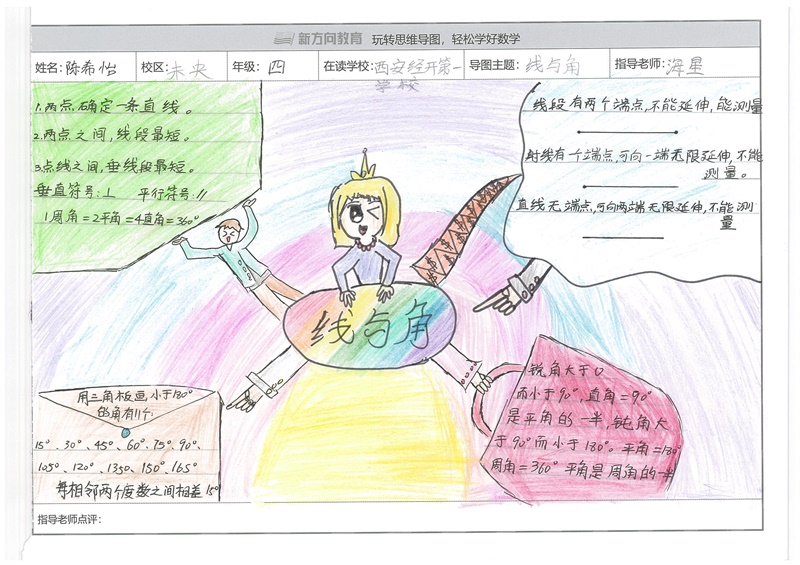 新方向教育 玩转思维导图，轻松学好数学
姓名: 陈希怡 校区: 未央 年级: 四 在读学校: 西安经开第一学校 导图主题: 线与角 指导老师: 海星
1.两点确定一条直线。
2.两点之间,线段最短。
3.点线之间,垂线段最短。
垂直符号:⊥ 平行符号://
1周角=2平角=4直角=360°
线段有两个端点,不能延伸,能测量
射线有一个端点,可向一端无限延伸,不能
测量。
直线无端点,可向两端无限延伸,不能测
量
线与角
用三角板画,小于180°
的角有11个:
15°、30°、45°、60°、75°、90°、
105°、120°、135°、150°、165°
每相邻两个度数之间相差15°
锐角大于0
而小于90°,直角=90°
是平角的一半,钝角大
于90°而小于180°。平角=180°
周角=360°平角是周角的一半
指导老师点评：